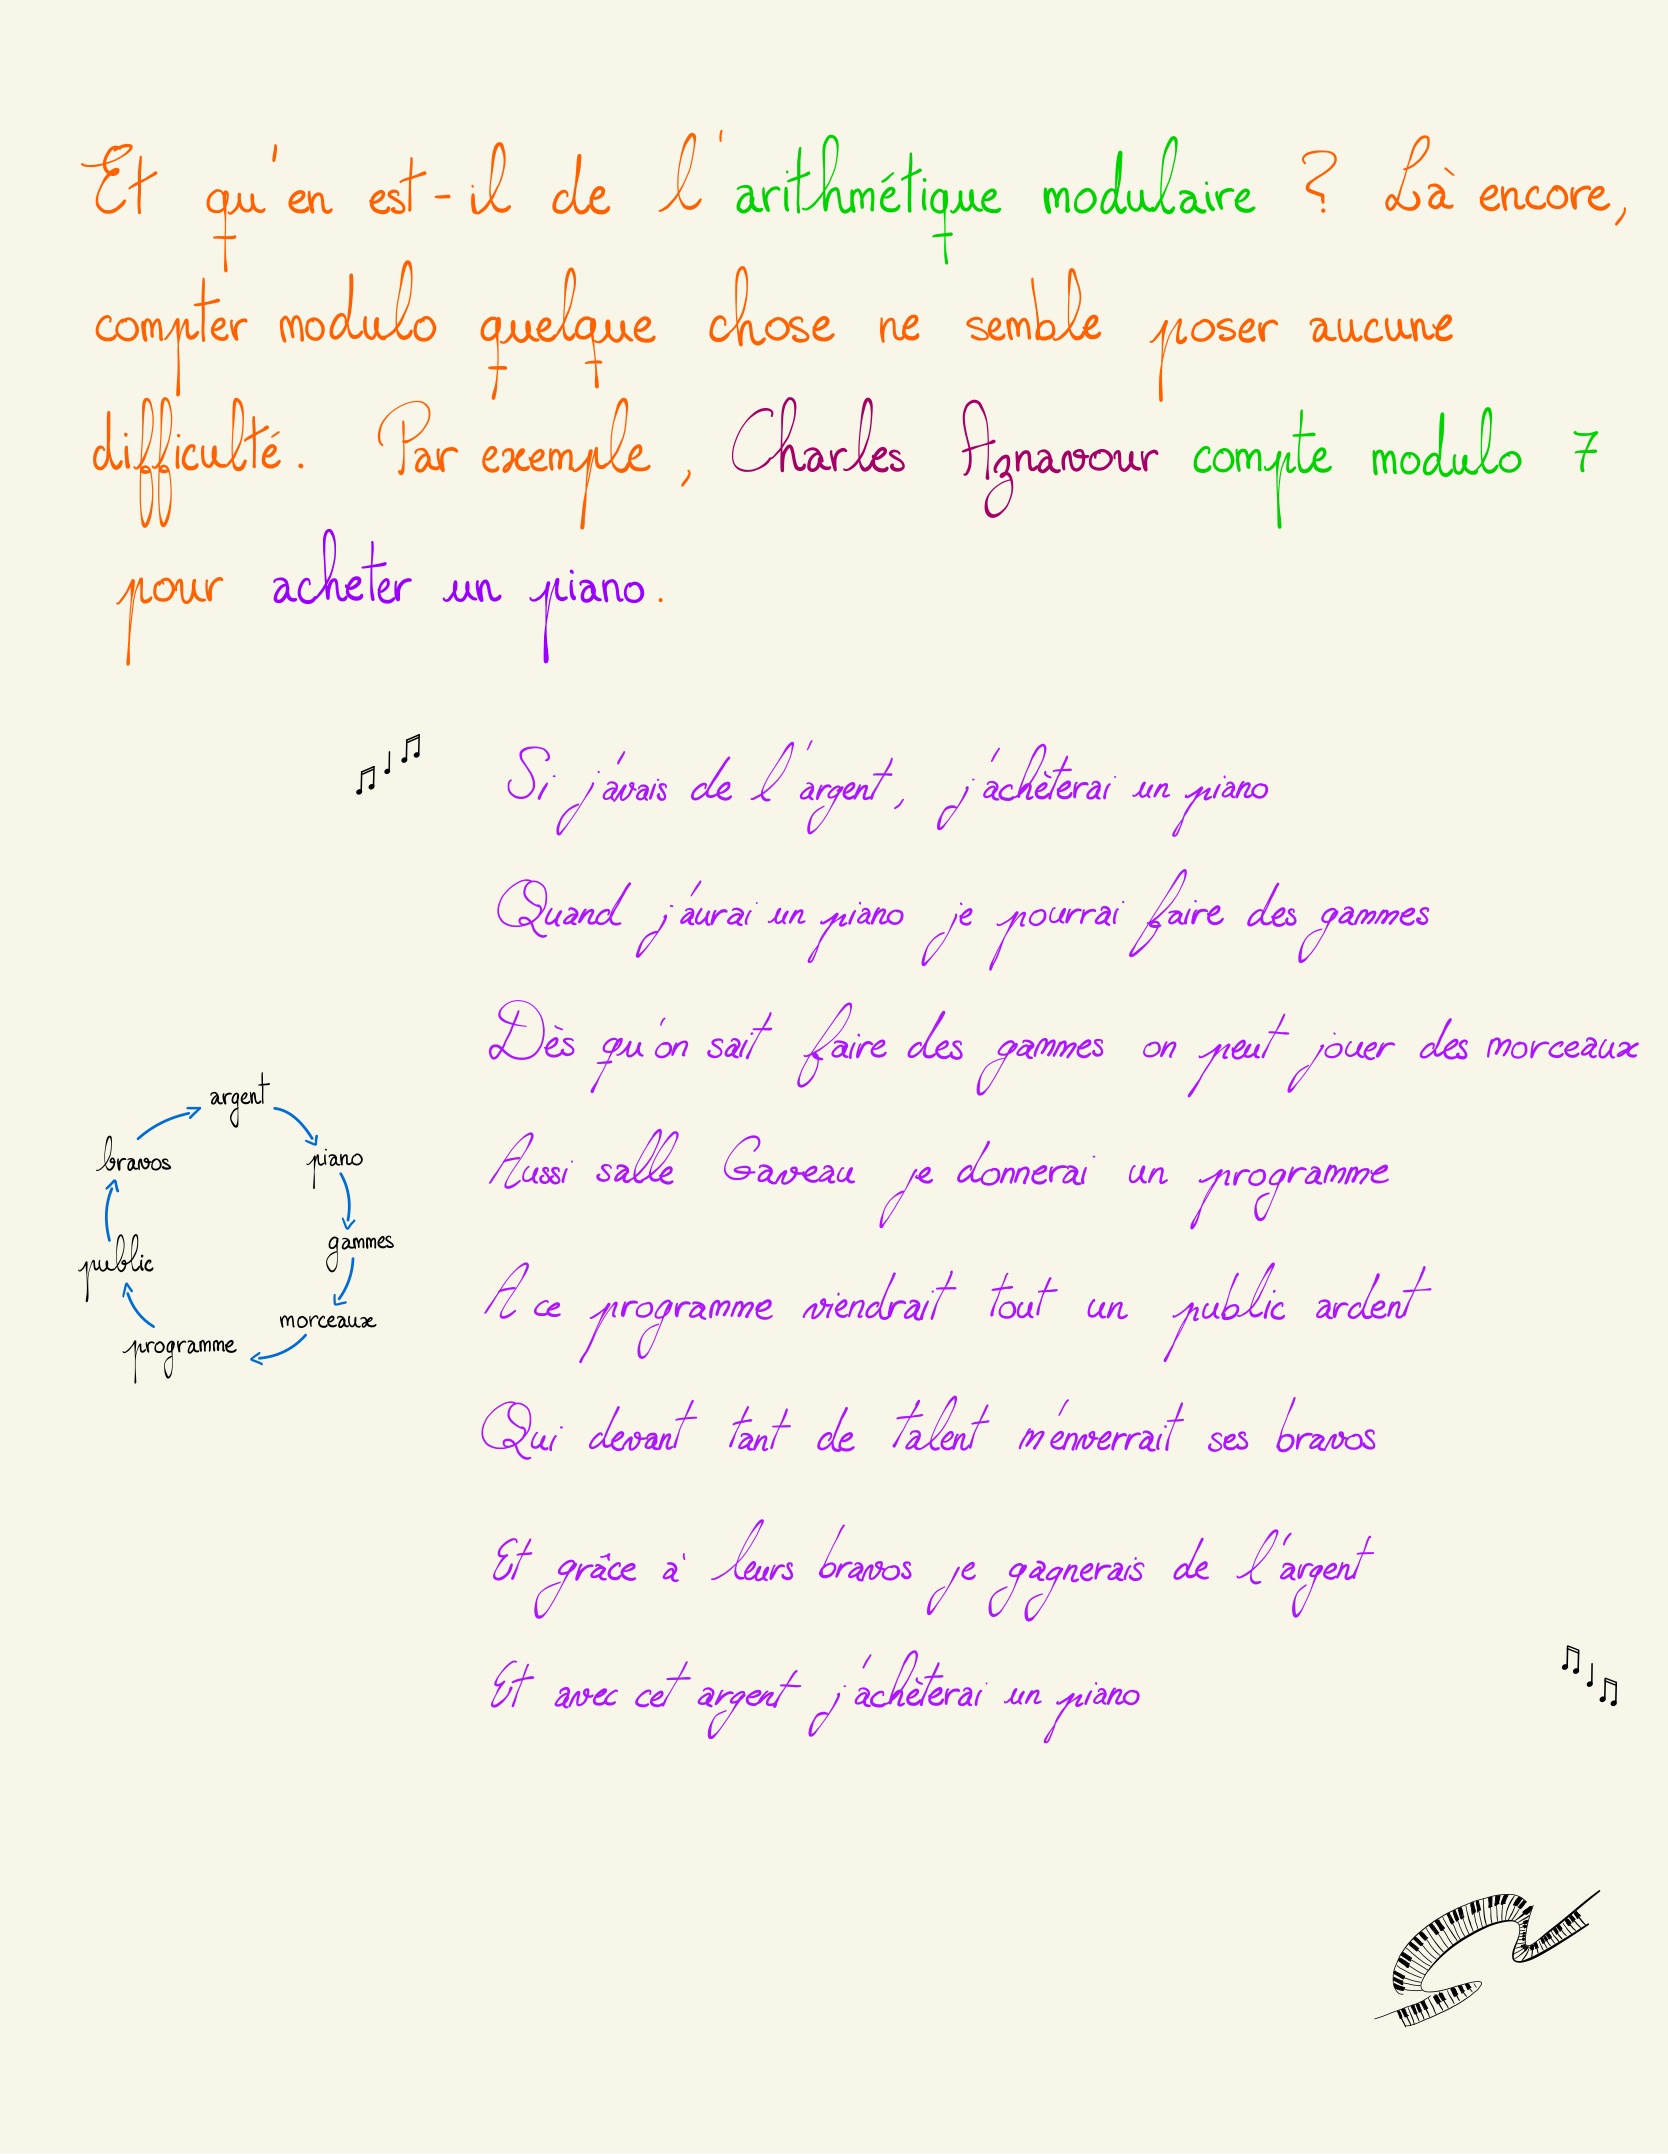 Et qu'en est-il de l'arithmétique modulaire ? Là encore,
compter modulo quelque chose ne semble poser aucune
difficulté. Par exemple, Charles Aznavour compte modulo 7
pour acheter un piano.
Si j'avais de l'argent, j'achèterai un piano
Quand j'aurai un piano je pourrai faire des gammes
Dès qu'on sait faire des gammes on peut jouer des morceaux
Aussi salle Gaveau je donnerai un programme
A ce programme viendrait tout un public ardent
Qui devant tant de talent m'enverrait ses bravos
Et grâce à leurs bravos je gagnerais de l'argent
Et avec cet argent j'achèterai un piano
argent
piano
gammes
morceaux
programme
public
bravos